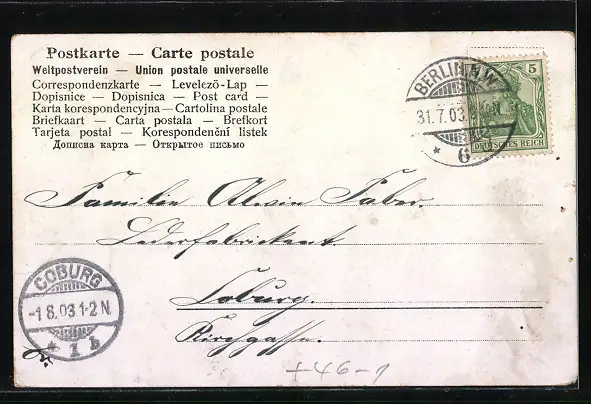 Postkarte — Carte postale
Weltpostverein — Union postale universelle
Correspondenzkarte — Levelező-Lap —
Dopisnice — Dopisnica — Post card —
Karta korespondencyjna — Cartolina postale
Briefkaart — Carta postala — Brefkort
Tarjeta postal — Korespondenční listek
Дописна карта — Открытое письмо
BERLIN N.W.
31.7.03.
* 6
5
DEUTSCHES REICH
Familie Alwin Faber.
Lederfabrikant.
Coburg.
Kirchgasse.
COBURG
-1 8.03.1-2 N.
* 1 b
+46-1